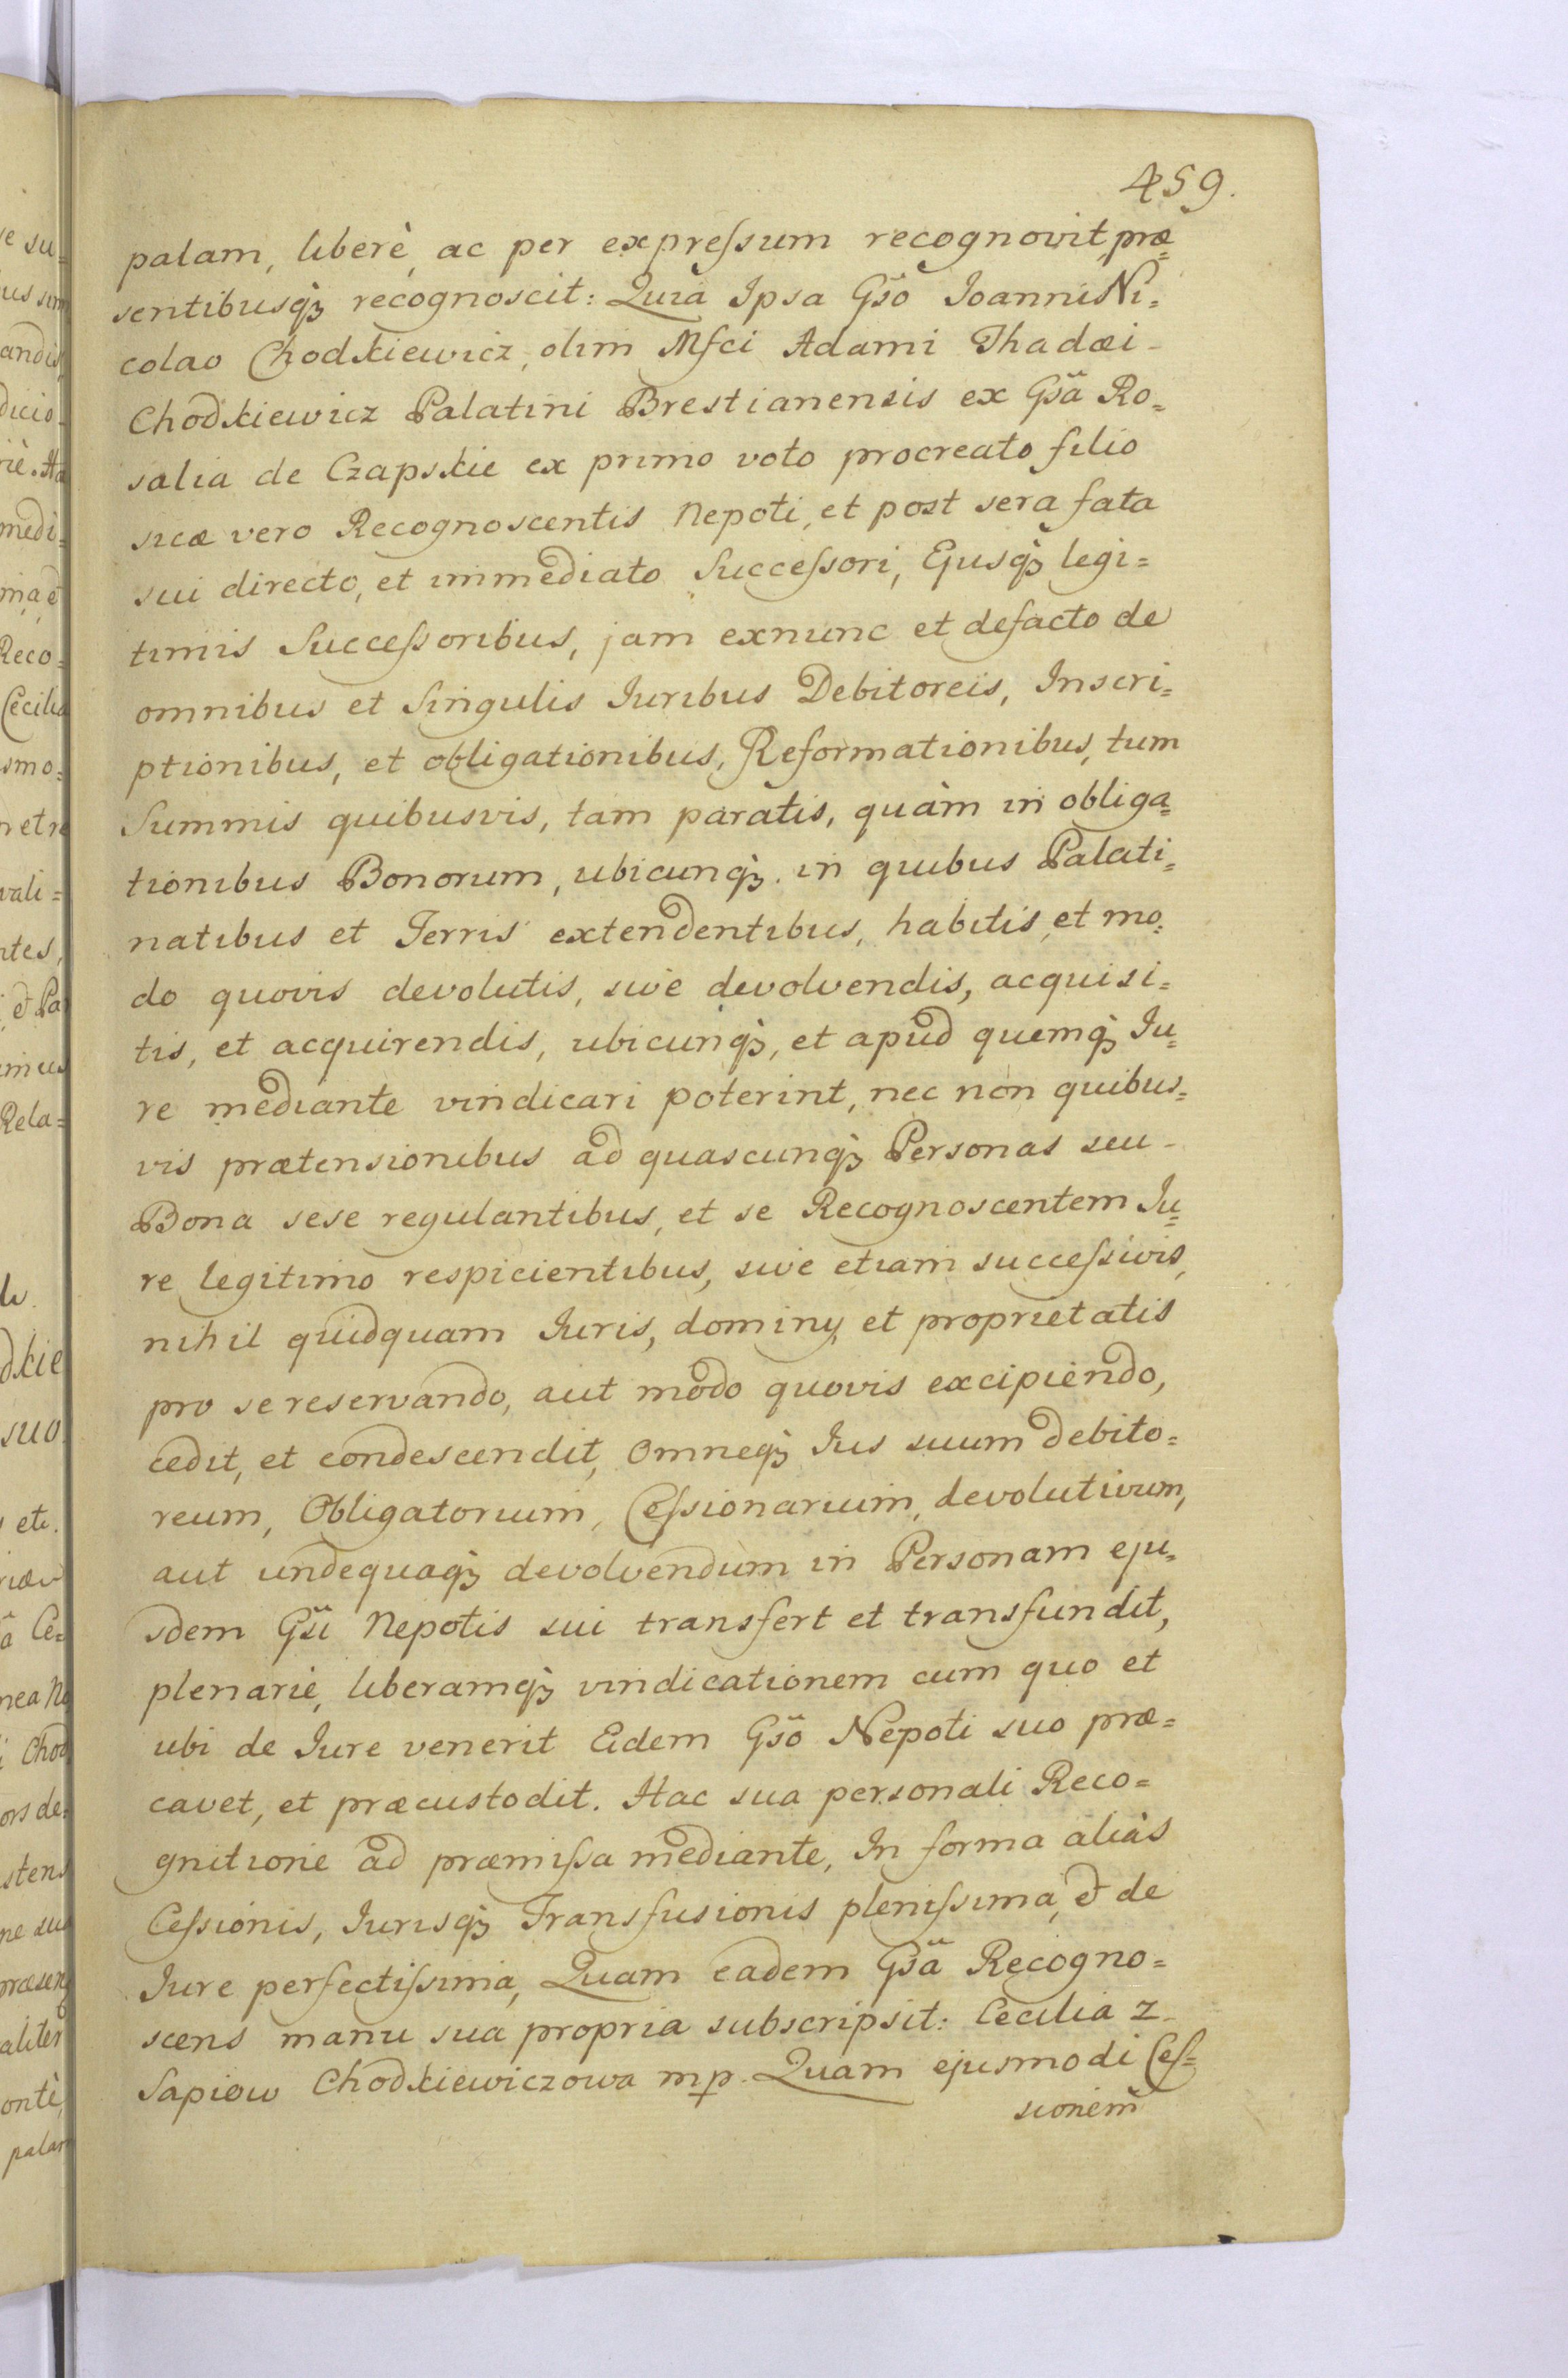 459.
palam, liberè, ac per expreſsum recognovit, præ=
sentibusq̃ recognoscit: Quia Ipsa Gsõ Joanni Ni=
colao Chodkiewicz, olim Mfci Adami Thadæi
Chodkiewicz Palatini Brestianensis ex Gsã Ro=
salia de Czapskie ex primo voto procreato filio
suæ vero Recognoscentis Nepoti, et post sera fata
sui directo, et immediato Succeſsori, Ejusq̃ legi=
timis Succeſsoribus, jam exnunc et defacto de
omnibus et Singulis Juribus Debitoreis, Inscri=
ptionibus, et obligationibus, Reformationibus, tum
Summis quibusvis, tam paratis, quàm in obliga=
tionibus Bonorum, ubicunq̃ in quibus Palati=
natibus et Terris extendentibus, habitis, et mo=
do quovis devolutis, sive devolvendis, acquisi=
tis, et acquirendis, ubicunq̃, et apud quemq̃ Ju=
re mediante vindicari poterint, nec non quibus=
vis prætensionibus ad quascunq̃ Personas seu
Bona sese regulantibus, et se Recognoscentem Ju=
re legitimo respicientibus, sive etiam succeſsivis,
nihil quidquam Juris, dominy et proprietatis
pro se reservando, aut modo quovis excipiendo,
cedit, et condescendit, Omneq̃ Jus suum debito=
reum, Obligatorium, Ceſsionarium, devolutivum,
aut undequaq̃ devolvendum in Personam eju=
sdem Gsĩ Nepotis sui transfert et transfundit,
plenariè, liberamq̃ vindicationem cum quo et
ubi de Jure venerit Eidem Gsõ Nepoti suo præ=
cavet, et præcustodit. Hac sua personali Reco=
gnitione ad præmiſsa mediante, In forma aliàs
Ceſsionis, Jurisq̃ Transfusionis pleniſsima, et de
Jure perfectiſsima, Quam eadem Gsã Recogno=
scens manu sua propria subscripsit: Cecilia z
Sapiow Chodkiewiczowa mp. Quam ejusmodi Ceſ=
sionem